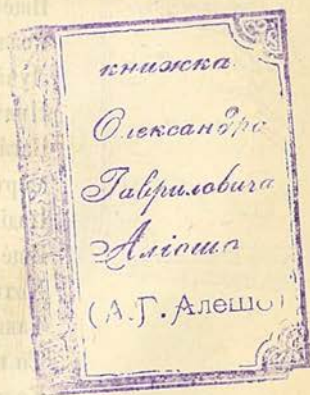 книжка
Олександра
Гавриловича
Аліошо
(А.Г. Алешо)